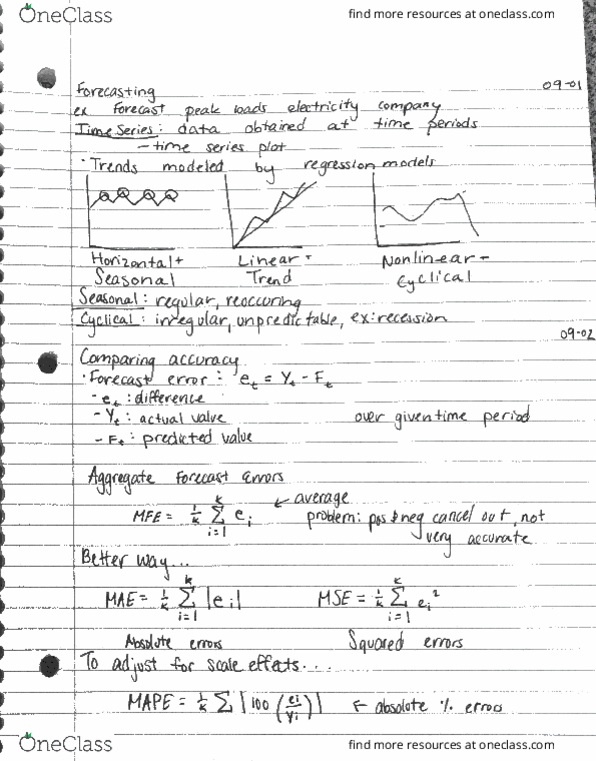 OneClass find more resources at oneclass.com
09-01
Forecasting
ex Forecast peak loads electricity company
Time Series: data obtained at time periods
- time series plot
· Trends modeled by regression models
Horizontal + Linear + Nonlinear -
Seasonal Trend Cyclical
Seasonal: regular, reoccuring
Cyclical: irregular, unpredictable, ex: recession
09-02
Comparing accuracy
· Forecast error: e_t = Y_t - F_t
- e_t: difference
- Y_t: actual value over given time period
- F_t: predicted value
Aggregate Forecast Errors
MFE = 1/k Σ_{i=1}^{k} e_i ← average
problem: pos & neg cancel out, not
very accurate
Better way...
MAE = 1/k Σ_{i=1}^{k} |e_i| MSE = 1/k Σ_{i=1}^{k} e_i²
Absolute errors Squared errors
To adjust for scale effects...
MAPE = 1/k Σ |100 (e_i/Y_i)| ← absolute % errors
OneClass find more resources at oneclass.com